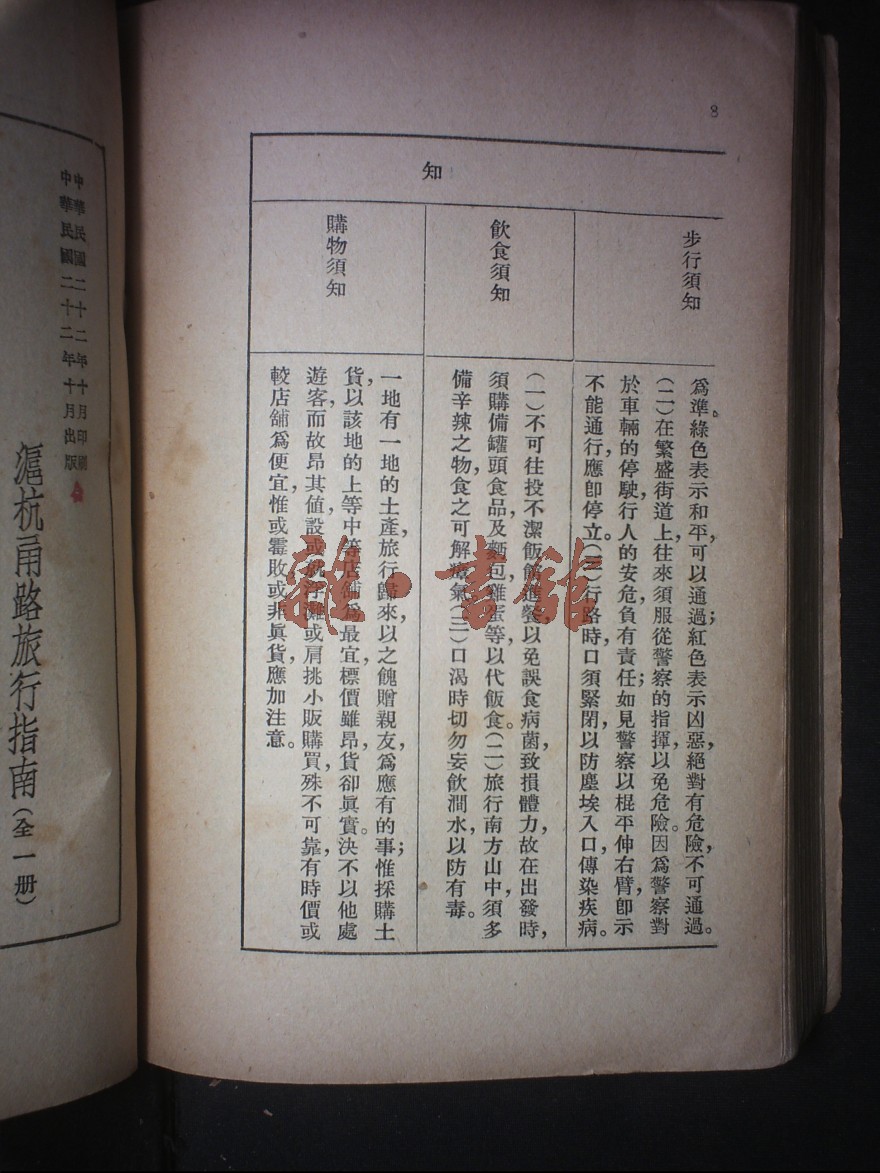 8
知
步行須知
爲準。綠色表示和平,可以通過;紅色表示凶惡,絕對有危險,不可通過。
(二)在繁盛街道上,往來須服從警察的指揮,以免危險。因爲警察對
於車輛的停駛,行人的安危,負有責任;如見警察以棍平伸右臂,卽示
不能通行,應卽停立。(三)行路時口須緊閉,以防塵埃入口,傳染疾病。
飲食須知
(一)不可往投不潔飯館進餐,以免誤食病菌,致損體力,故在出發時,
須購備罐頭食品,及麵包雞蛋等,以代飯食。(二)旅行南方山中,須多
備辛辣之物,食之可解瘴氣,(三)口渴時切勿妄飲澗水,以防有毒。
購物須知
一地有一地的土產,旅行歸來,以之餽贈親友,爲應有的事;惟採購土
貨,以該地的上等中等店舖爲最宜,標價雖昂,貨卻眞實。決不以他處
遊客,而故昂其値,設或就浮灘或肩挑小販購買,殊不可靠,有時價或
較店舖爲便宜,惟或霉敗或非眞貨,應加注意。
雜·書館
中華民國二十二年十月印刷
中華民國二十二年十月出版
滬杭甬路旅行指南(全一册)